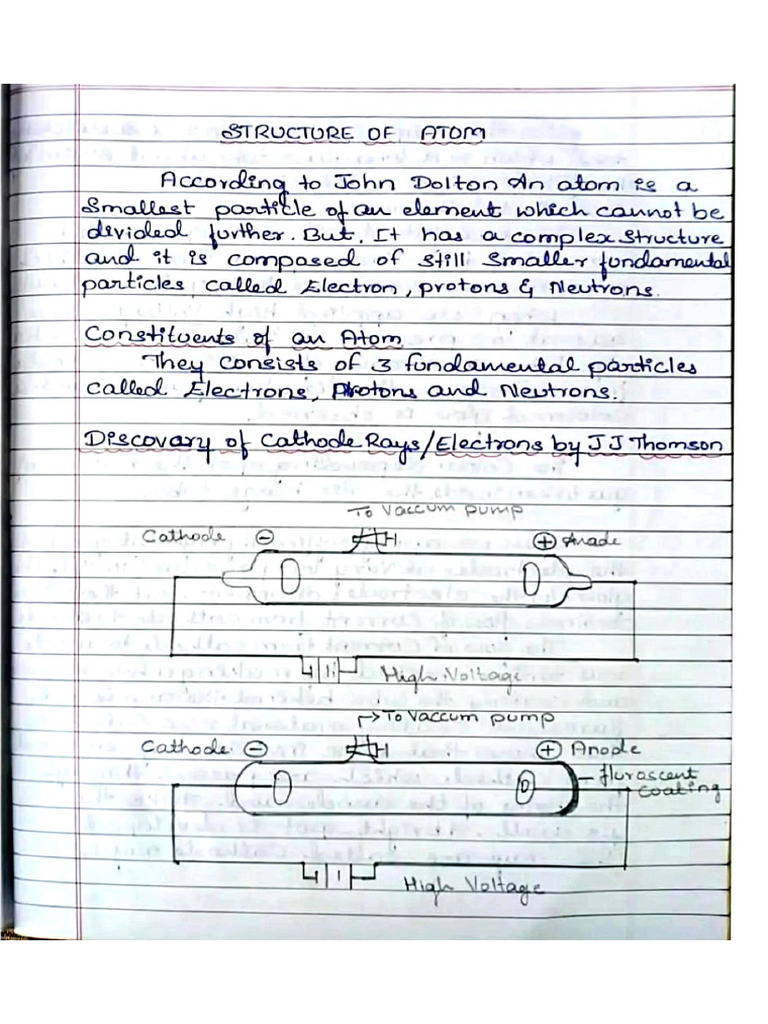 STRUCTURE OF ATOM
According to John Dolton An atom is a
Smallest particle of an element which cannot be
divided further. But, It has a complex structure
and it is composed of still smaller fundamental
particles called Electron, protons & Neutrons.
Constituents of an Atom
They consists of 3 fundamental particles
called Electrons, Protons and Neutrons.
Discovary of Cathode Rays/Electrons by J J Thomson
To Vaccum pump
Cathode ⊖ ⊕ Anade
High Voltage
→ To Vaccum pump
Cathode ⊖ ⊕ Anode
flurascent
coating
High Voltage